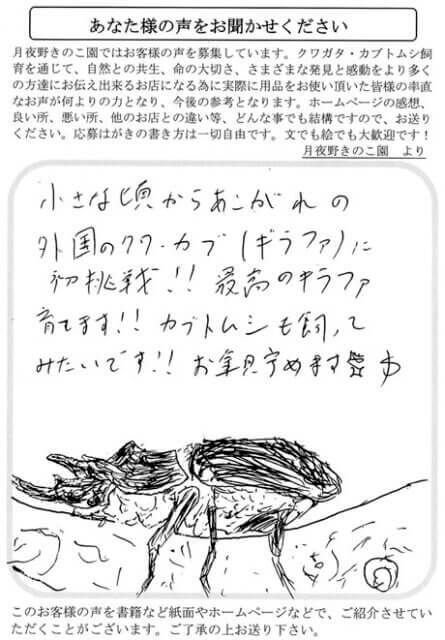 あなた様の声をお聞かせください
月夜野きのこ園ではお客様の声を募集しています。クワガタ・カブトムシ飼
育を通じて、自然との共生、命の大切さ、さまざまな発見と感動をより多く
の方達にお伝え出来るお店になる為に実際に用品をお使い頂いた皆様の率直
なお声が何よりの力となり、今後の参考となります。ホームページの感想、
良い所、悪い所、他のお店との違い等、どんな事でも結構ですので、お送り
ください。応募はがきの書き方は一切自由です。文でも絵でも大歓迎です！
月夜野きのこ園 より
小さな頃からあこがれの
外国のクワ・カブ(ギラファ)に
初挑戦!! 最高のギラファ
育てます!! カブトムシも飼って
みたいです!! お金貯めます
このお客様の声を書籍など紙面やホームページなどで、ご紹介させてい
ただくことがございます。ご了承の上お送り下さい。